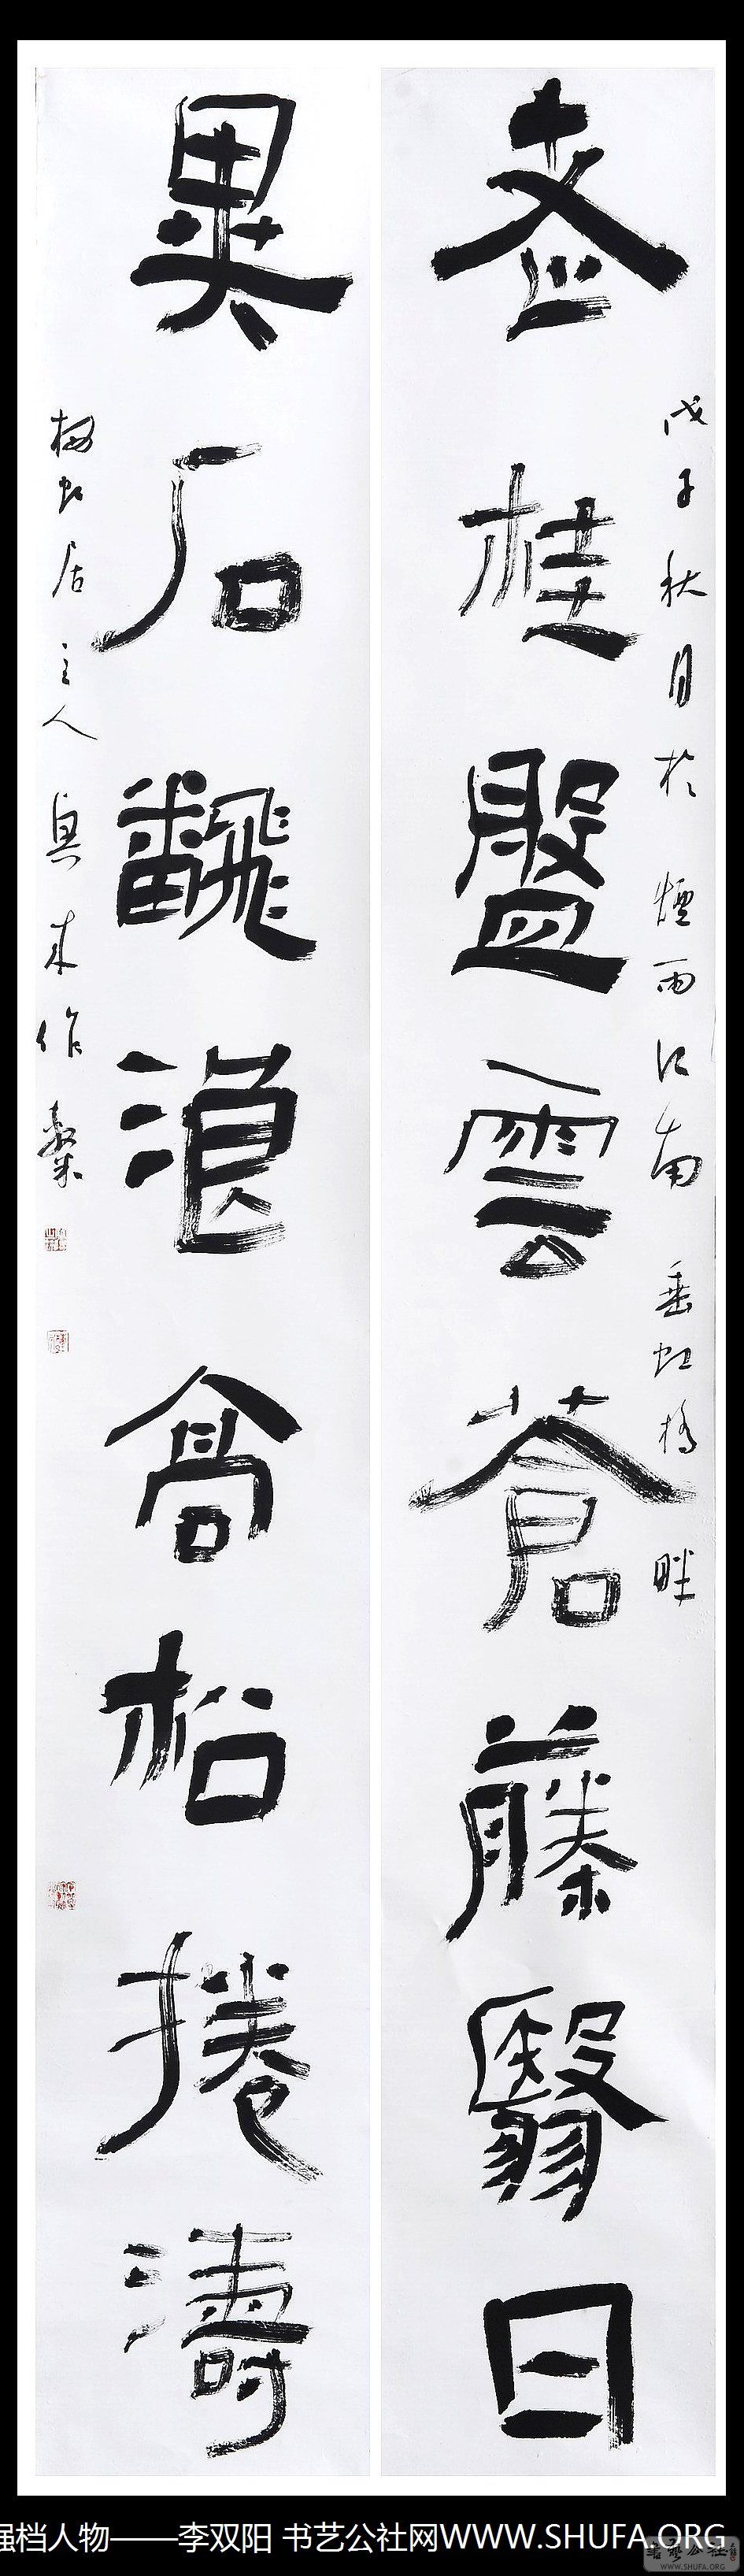 老桂盤雲蒼藤翳日
戊子秋月於煙雨江南垂虹橋畔
異石飜浪高松捲濤
虹居主人 作
强档人物——李双阳 书艺公社网WWW.SHUFA.ORG
書藝公社
WWW.SHUFA.ORG